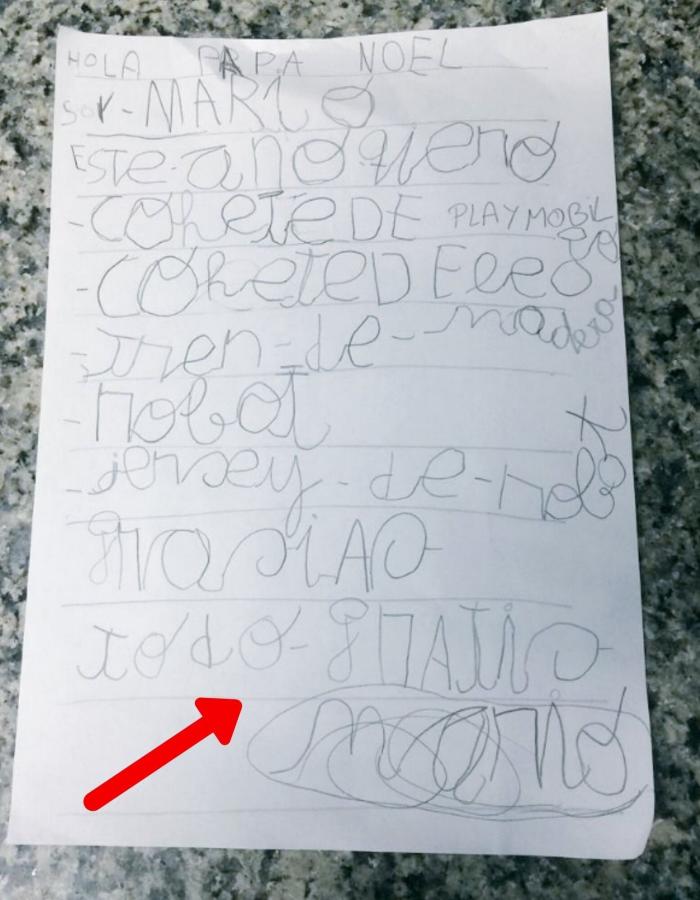 HOLA PAPA NOEL
SOY-MARIO
ESTE-año quero
-COheteDE PLAYMOBIL
-COheteD Elego
-tren-de-madera
-robot
-jersey-de-robot
grasiAs
todo-gratis
mario